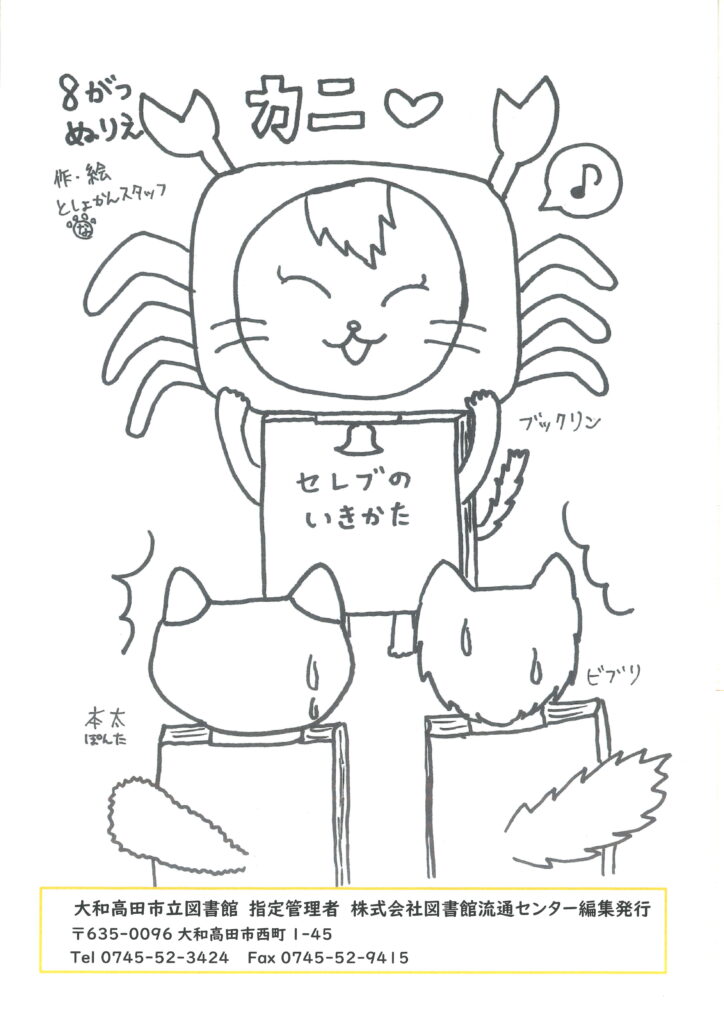 8がつ
ぬりえ
カニ♡
作・絵
としょかんスタッフ
な
♪
ブックリン
セレブの
いきかた
ビブリ
本太
ぽんた
大和高田市立図書館 指定管理者 株式会社図書館流通センター編集発行
〒635-0096 大和高田市西町 1-45
Tel 0745-52-3424 Fax 0745-52-9415